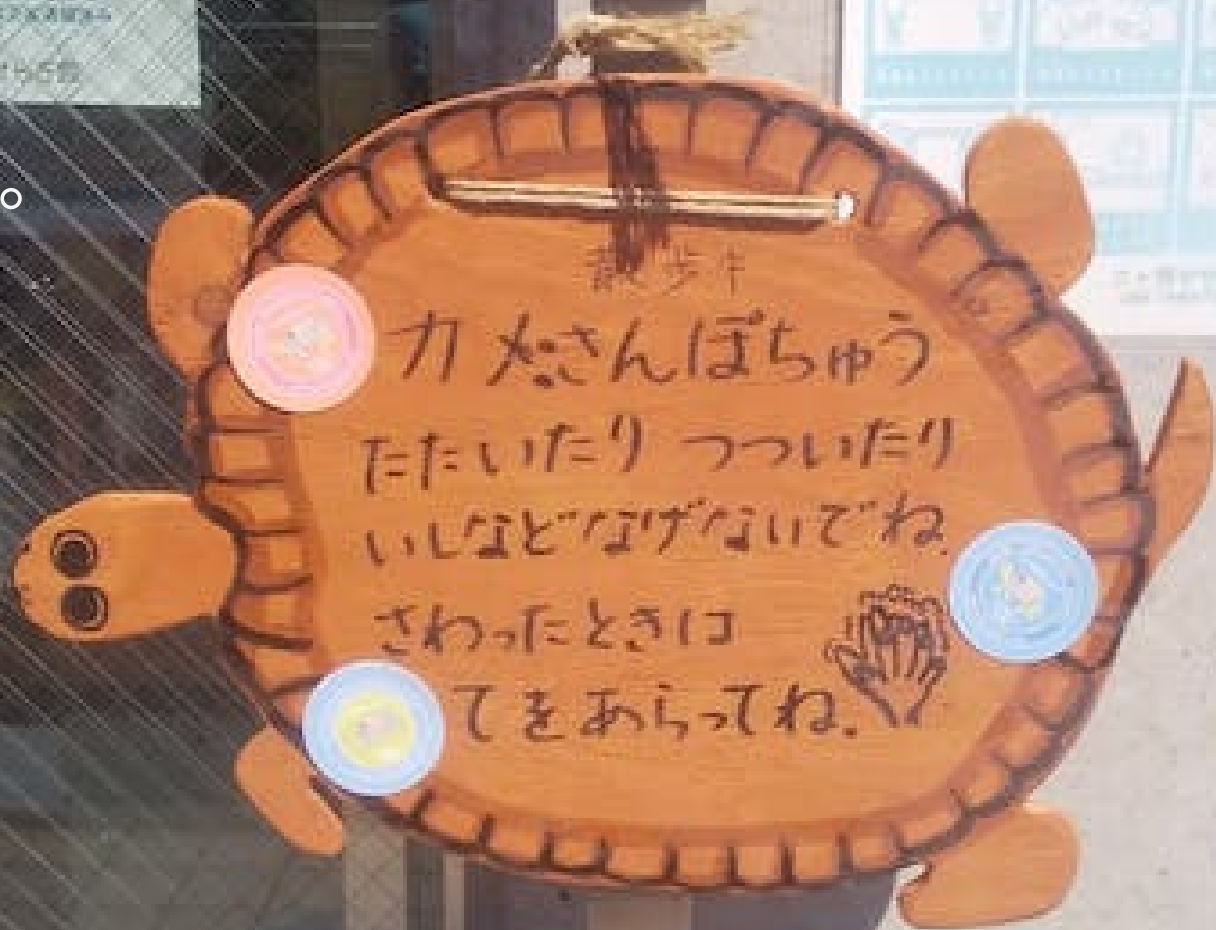 散歩中
カメさんぽちゅう
たたいたり つついたり
いしなどなげないでね.
さわったときに
てをあらってね.